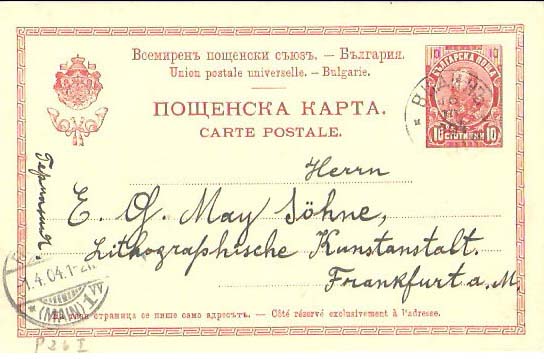 Всемиренъ пощенски съюзъ. — България.
Union postale universelle. — Bulgarie.
ПОЩЕНСКА КАРТА.
CARTE POSTALE.
БЪЛГАРСКА ПОЩА
10 СТОТИНКИ 10
Германия.
Herrn
E. G. May Söhne,
Lithographische Kunstanstalt.
Frankfurt a. M.
1.4.04.1-2
* (MAIN) 1
На тази страница се пише само адресътъ. — Côté réservé exclusivement à l'adresse.
P 26 I